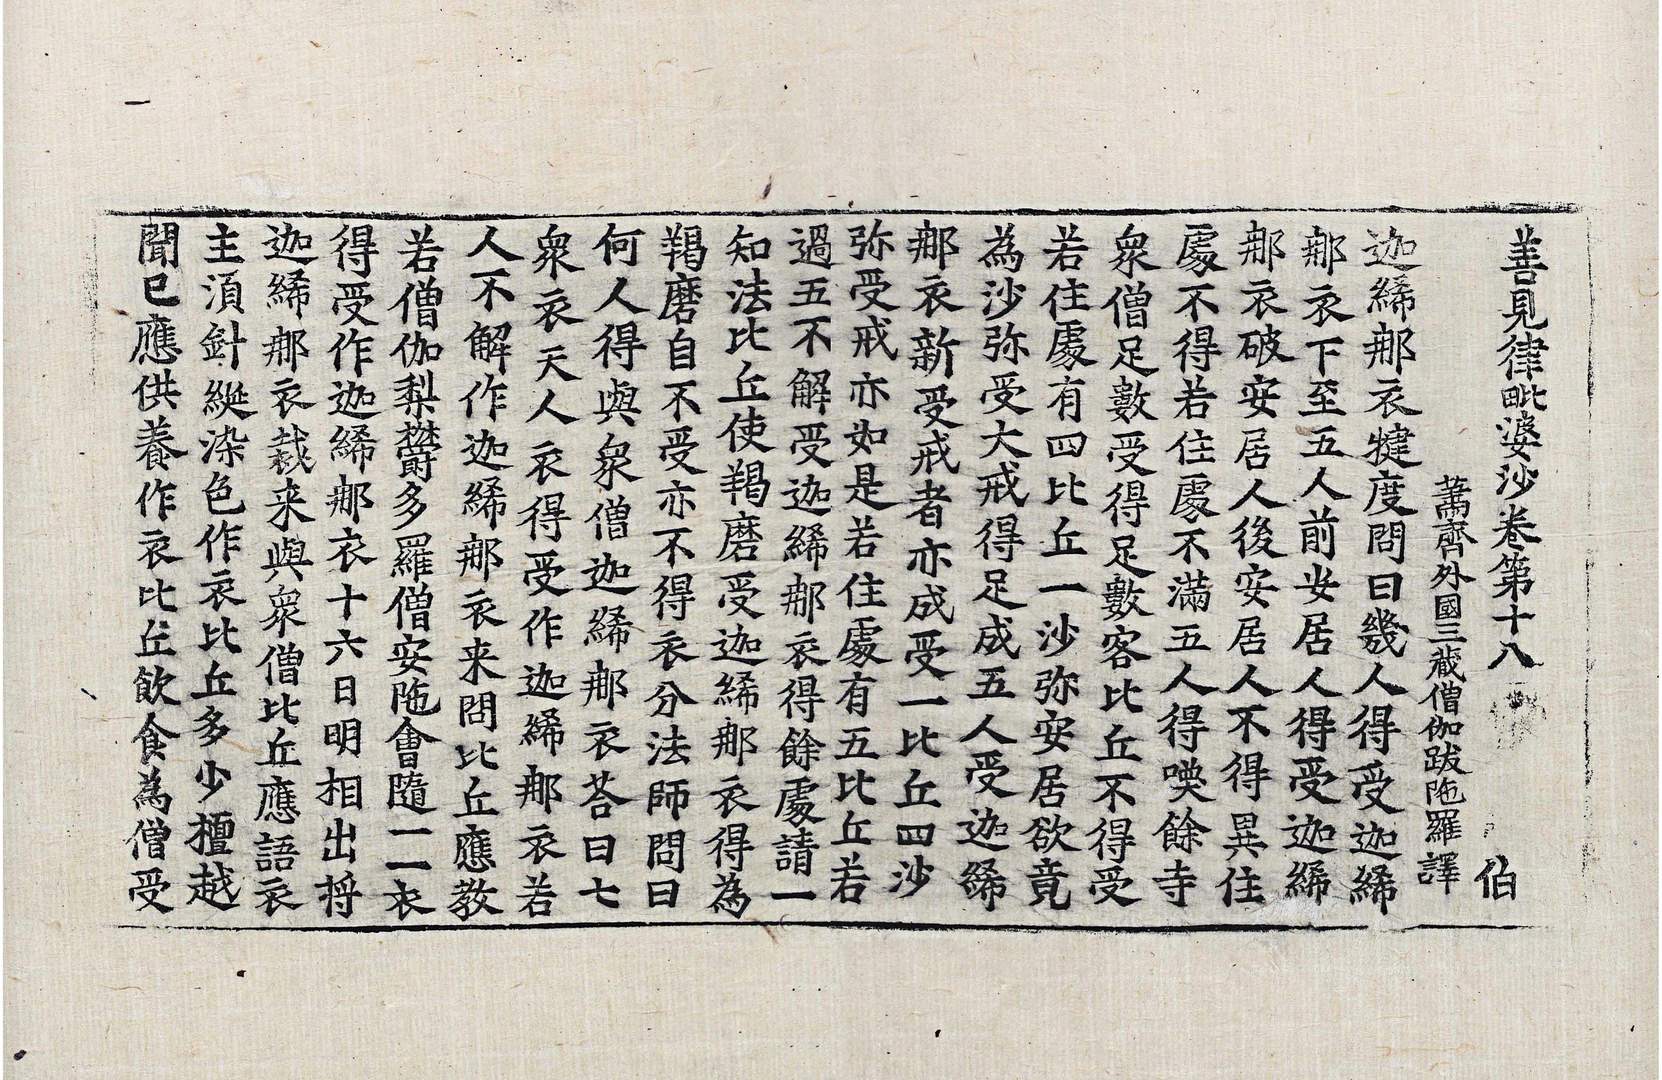 善見律毗婆沙卷第十八 伯
蕭齊外國三藏僧伽跋陁羅譯
迦絺郍衣犍度問曰幾人得受迦絺
郍衣下至五人前安居人得受迦絺
郍衣破安居人後安居人不得異住
處不得若住處不滿五人得喚餘寺
衆僧足數受得足數客比丘不得受
若住處有四比丘一沙弥安居欲竟
為沙弥受大戒得足成五人受迦絺
郍衣新受戒者亦成受一比丘四沙
弥受戒亦如是若住處有五比丘若
過五不解受迦絺郍衣得餘處請一
知法比丘使羯磨受迦絺郍衣得為
羯磨自不受亦不得衣分法師問曰
何人得與衆僧迦絺郍衣荅曰七
衆衣天人衣得受作迦絺郍衣若
人不解作迦絺郍衣来問比丘應教
若僧伽梨欝多羅僧安陁會隨一一衣
得受作迦絺郍衣十六日明相出将
迦絺郍衣裁来與衆僧比丘應語衣
主湏針綖染色作衣比丘多少檀越
聞已應供養作衣比丘飲食為僧受